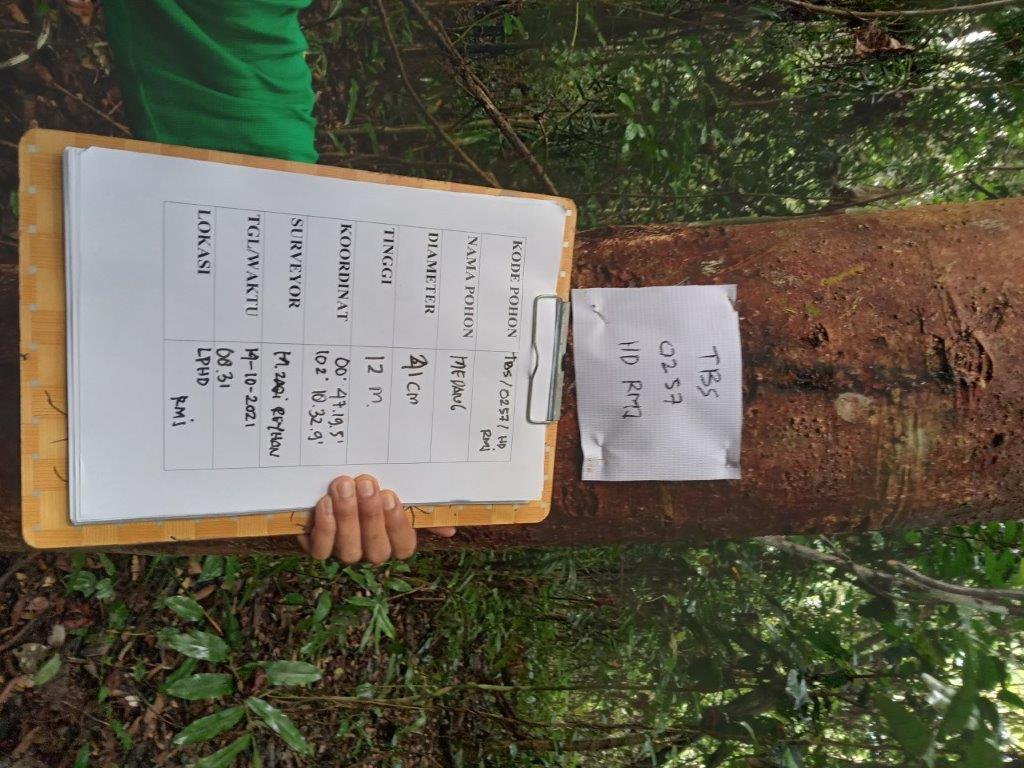 TBS
0257
HD RMJ
KODE POHON TBS/0257/ HD.
RMJ
NAMA POHON MEDANG
DIAMETER 41 CM
TINGGI 12 M.
KOORDINAT 00° 47.19.5'
102° 10.32.9'
SURVEYOR M. ZAQI REYHAN
TGL/WAKTU 14-10-2021
08.31
LOKASI LPHD
RMJ